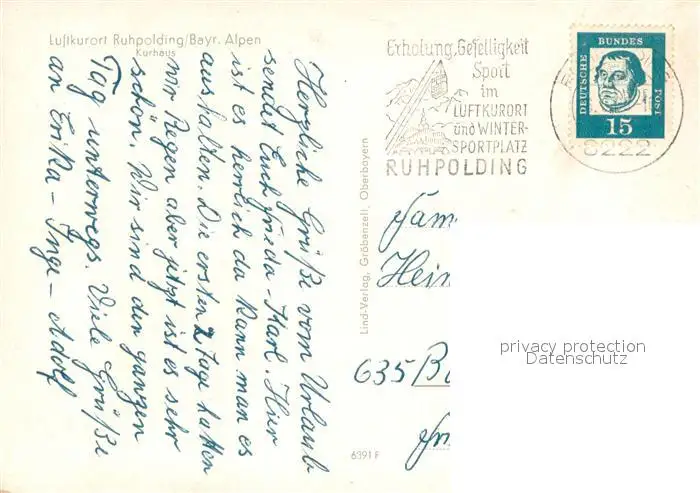 Luftkurort Ruhpolding/Bayr. Alpen
Kurhaus
Herzliche Grüße vom Urlaub
sendet Euch Frieda - Karl. Hier
ist es herrlich da kann man es
aushalten. Die ersten 2 Tage hatten
wir Regen aber jetzt ist es sehr
schön. Wir sind den ganzen
Tag unterwegs. Viele Grüße
an Erika - Inge - Adolf
Lind-Verlag, Gröbenzell, Oberbayern
6391 F
Erholung, Geselligkeit
Sport
im
LUFTKURORT
und WINTER-
SPORTPLATZ
RUHPOLDING
DEUTSCHE
BUNDES
POST
15
8222
Fam
Hein
635 Ba
privacy protection
Datenschutz